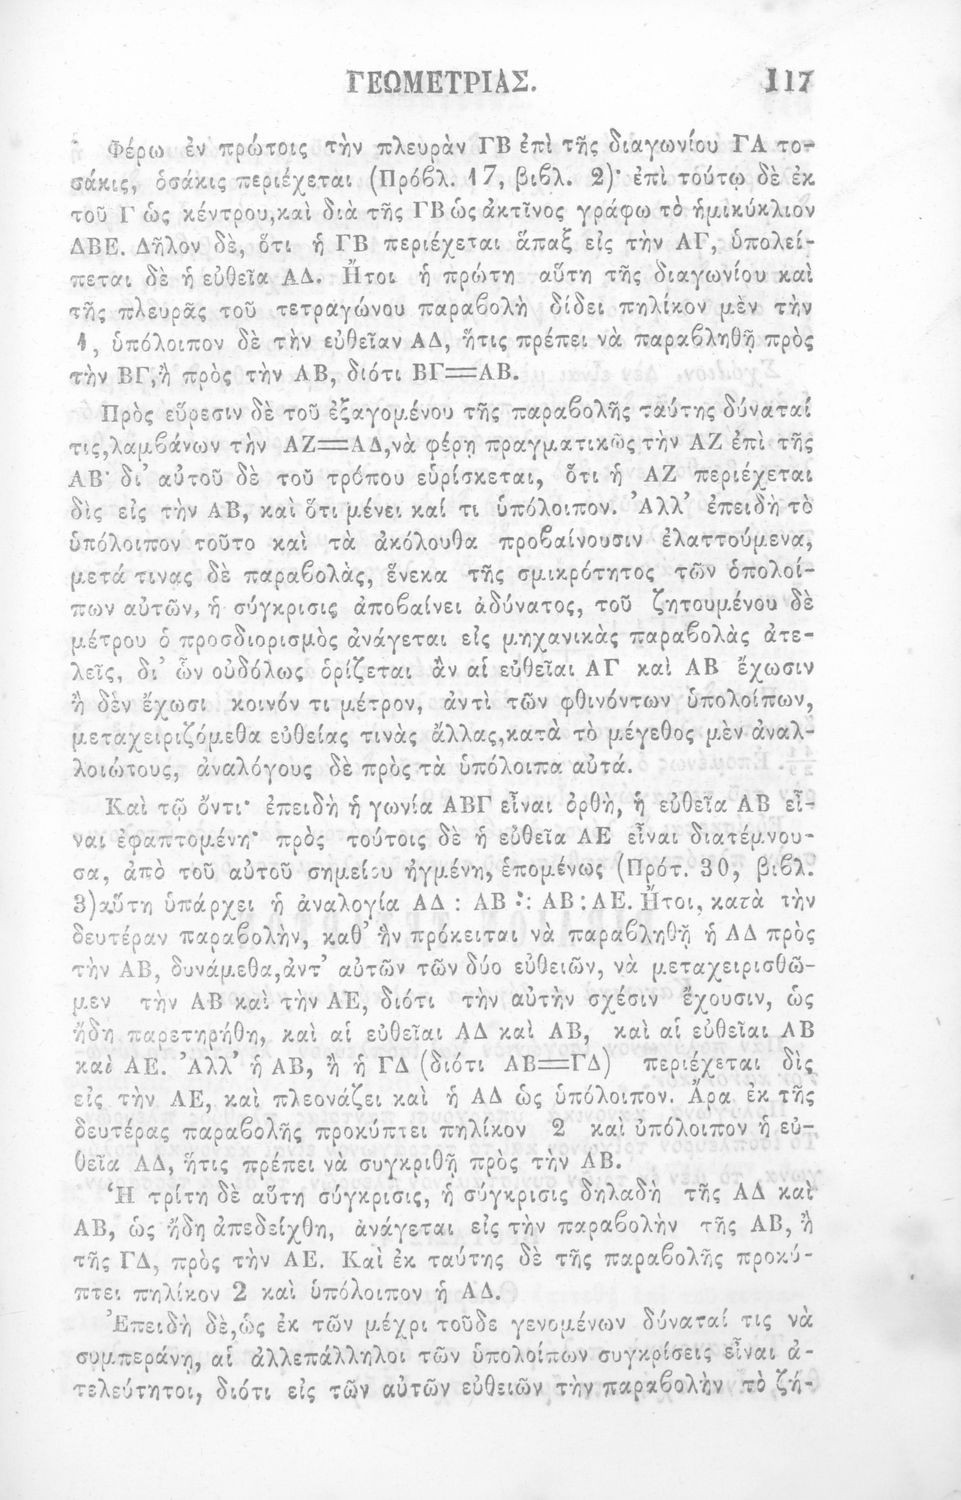 ΓΕΩΜΕΤΡΙΑΣ. 117
Φέρω ἐν πρώτοις τὴν πλευρὰν ΓΒ ἐπὶ τῆς διαγωνίου ΓΑ το-
σάκις, ὁσάκις περιέχεται (Πρόβλ. 17, βιβλ. 2)· ἐπὶ τούτῳ δὲ ἐκ
τοῦ Γ ὡς κέντρου, καὶ διὰ τῆς ΓΒ ὡς ἀκτῖνος γράφω τὸ ἡμικύκλιον
ΔΒΕ. Δῆλον δὲ, ὅτι ἡ ΓΒ περιέχεται ἅπαξ εἰς τὴν ΑΓ, ὑπολεί-
πεται δὲ ἡ εὐθεῖα ΑΔ. Ἤτοι ἡ πρώτη αὕτη τῆς διαγωνίου καὶ
τῆς πλευρᾶς τοῦ τετραγώνου παραβολὴ δίδει πηλίκον μὲν τὴν
1, ὑπόλοιπον δὲ τὴν εὐθεῖαν ΑΔ, ἥτις πρέπει νὰ παραβληθῇ πρὸς
τὴν ΒΓ, ἢ πρὸς τὴν ΑΒ, διότι ΒΓ=ΑΒ.
Πρὸς εὕρεσιν δὲ τοῦ ἐξαγομένου τῆς παραβολῆς ταύτης δύναταί
τις, λαμβάνων τὴν ΑΖ=ΑΔ, νὰ φέρῃ πραγματικῶς τὴν ΑΖ ἐπὶ τῆς
ΑΒ· δι' αὐτοῦ δὲ τοῦ τρόπου εὑρίσκεται, ὅτι ἡ ΑΖ περιέχεται
δὶς εἰς τὴν ΑΒ, καὶ ὅτι μένει καί τι ὑπόλοιπον. Ἀλλ' ἐπειδὴ τὸ
ὑπόλοιπον τοῦτο καὶ τὰ ἀκόλουθα προβαίνουσιν ἐλαττούμενα,
μετά τινας δὲ παραβολὰς, ἕνεκα τῆς σμικρότητος τῶν ὑπολοί-
πων αὐτῶν, ἡ σύγκρισις ἀποβαίνει ἀδύνατος, τοῦ ζητουμένου δὲ
μέτρου ὁ προσδιορισμὸς ἀνάγεται εἰς μηχανικὰς παραβολὰς ἀτε-
λεῖς, δι' ὧν οὐδόλως ὁρίζεται ἂν αἱ εὐθεῖαι ΑΓ καὶ ΑΒ ἔχωσιν
ἢ δὲν ἔχωσι κοινόν τι μέτρον, ἀντὶ τῶν φθινόντων ὑπολοίπων,
μεταχειριζόμεθα εὐθείας τινὰς ἄλλας, κατὰ τὸ μέγεθος μὲν ἀναλ-
λοιώτους, ἀναλόγους δὲ πρὸς τὰ ὑπόλοιπα αὐτά.
Καὶ τῷ ὄντι· ἐπειδὴ ἡ γωνία ΑΒΓ εἶναι ὀρθὴ, ἡ εὐθεῖα ΑΒ εἶ-
ναι ἐφαπτομένη· πρὸς τούτοις δὲ ἡ εὐθεῖα ΑΕ εἶναι διατέμνου-
σα, ἀπὸ τοῦ αὐτοῦ σημείου ἠγμένη, ἑπομένως (Πρότ. 30, βιβλ.
3) αὕτη ὑπάρχει ἡ ἀναλογία ΑΔ : ΑΒ :: ΑΒ : ΑΕ. Ἤτοι, κατὰ τὴν
δευτέραν παραβολὴν, καθ' ἣν πρόκειται νὰ παραβληθῇ ἡ ΑΔ πρὸς
τὴν ΑΒ, δυνάμεθα, ἀντ' αὐτῶν τῶν δύο εὐθειῶν, νὰ μεταχειρισθῶ-
μεν τὴν ΑΒ καὶ τὴν ΑΕ, διότι τὴν αὐτὴν σχέσιν ἔχουσιν, ὡς
ἤδη παρετηρήθη, καὶ αἱ εὐθεῖαι ΑΔ καὶ ΑΒ, καὶ αἱ εὐθεῖαι ΑΒ
καὶ ΑΕ. Ἀλλ' ἡ ΑΒ, ἢ ἡ ΓΔ (διότι ΑΒ=ΓΔ) περιέχεται δὶς
εἰς τὴν ΑΕ, καὶ πλεονάζει καὶ ἡ ΑΔ ὡς ὑπόλοιπον. Ἄρα ἐκ τῆς
δευτέρας παραβολῆς προκύπτει πηλίκον 2 καὶ ὑπόλοιπον ἡ εὐ-
θεῖα ΑΔ, ἥτις πρέπει νὰ συγκριθῇ πρὸς τὴν ΑΒ.
Ἡ τρίτη δὲ αὕτη σύγκρισις, ἡ σύγκρισις δηλαδὴ τῆς ΑΔ καὶ
ΑΒ, ὡς ἤδη ἀπεδείχθη, ἀνάγεται εἰς τὴν παραβολὴν τῆς ΑΒ, ἢ
τῆς ΓΔ, πρὸς τὴν ΑΕ. Καὶ ἐκ ταύτης δὲ τῆς παραβολῆς προκύ-
πτει πηλίκον 2 καὶ ὑπόλοιπον ἡ ΑΔ.
Ἐπειδὴ δὲ, ὡς ἐκ τῶν μέχρι τοῦδε γενομένων δύναταί τις νὰ
συμπεράνῃ, αἱ ἀλλεπάλληλοι τῶν ὑπολοίπων συγκρίσεις εἶναι ἀ-
τελεύτητοι, διότι εἰς τῶν αὐτῶν εὐθειῶν τὴν παραβολὴν τὸ ζή-